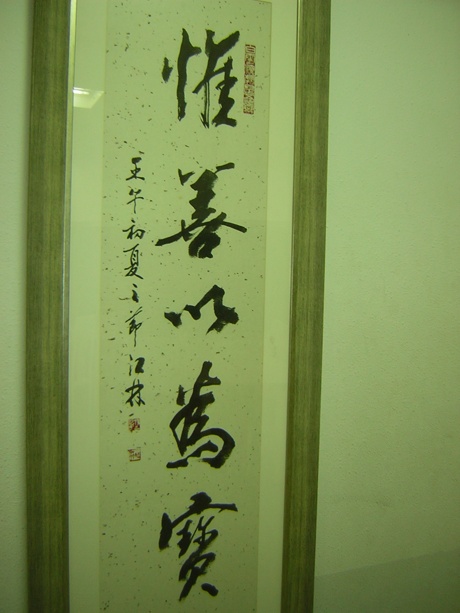 惟善以爲寳
壬午初夏之節江林